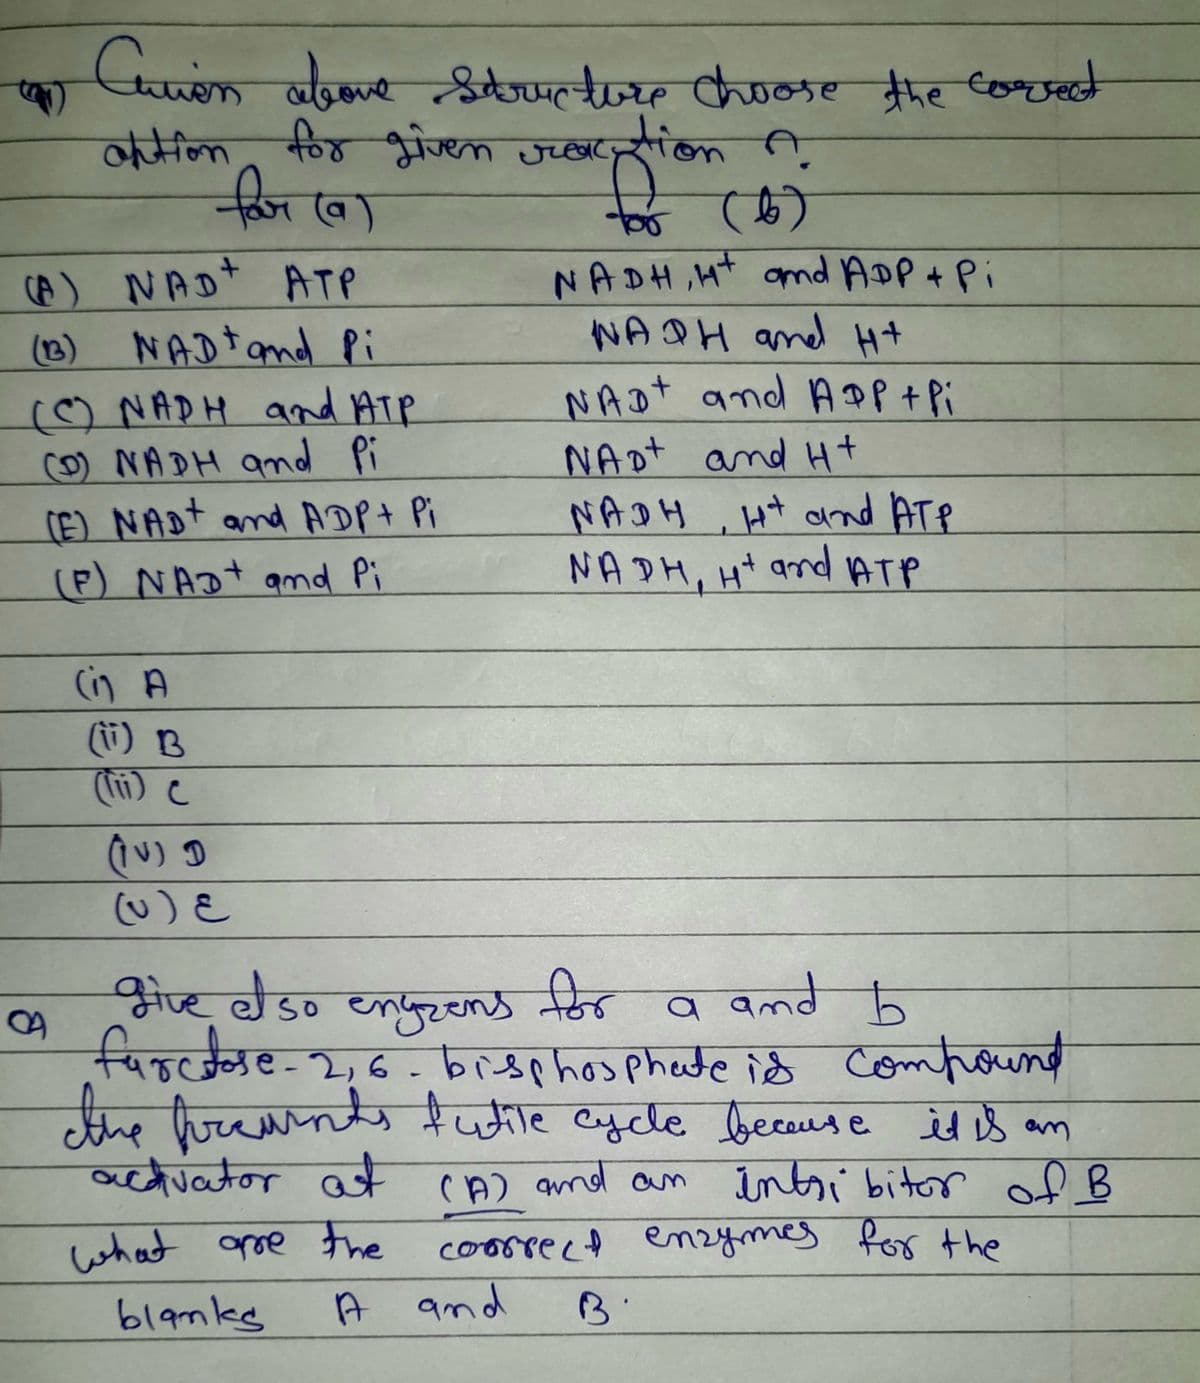 Q1) Given above structure choose the correct
option for given reaction ?
for (a) for (b)
(A) NAD+ ATP NADH, H+ and ADP + Pi
(B) NAD+ and Pi NADH and H+
(C) NADH and ATP NAD+ and ADP + Pi
(D) NADH and Pi NAD+ and H+
(E) NAD+ and ADP + Pi NADH, H+ and ATP
(F) NAD+ and Pi NADH, H+ and ATP
(i) A
(ii) B
(iii) C
(iv) D
(v) E
Give also enyzens for a and b
Q furctose-2,6-bisphosphate is compound
the prevents futile cycle because it is an
activator at (A) and an intribitor of B
what are the coorrect enzymes for the
blanks A and B.